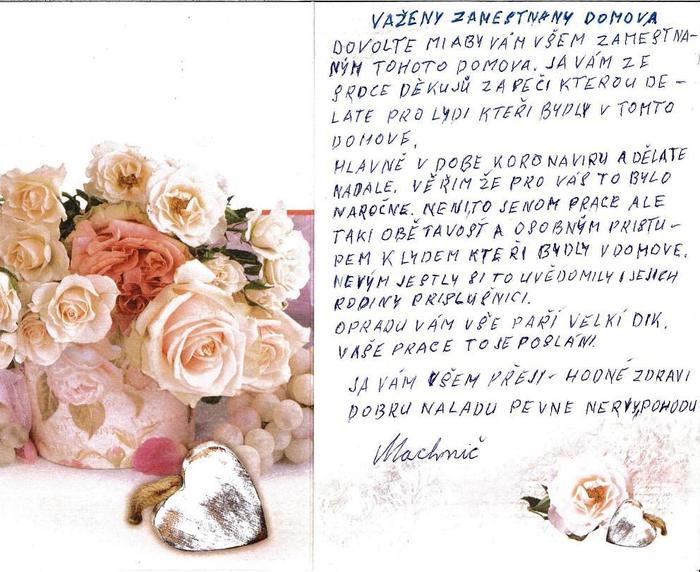 VAŽENY ZAMESTNANY DOMOVA
DOVOLTE MI ABY VÁM VŠEM ZAMESTNA-
NÝM TOHOTO DOMOVA. JA VÁM ZE
SRDCE DĚKUJŮ ZA PEČI KTEROU DE-
LATE PRO LYDI KTEŘI BYDLY V TOMTO
DOMOVE.
HLAVNĚ V DOBE KORONAVIRU A DĚLATE
NADALE. VĚŘIM ŽE PRO VÁS TO BYLO
NAROČNE. NENI TO JENOM PRACE ALE
TAKI OBĚTAVOST A OSOBNÝM PRISTU-
PEM K LYDEM KTEŘI BYDLY V DOMOVE.
NEVÝM JESTLY SI TO UVĚDOMILY I JEJICH
RODINY PRISLUŠNICI.
OPRADU VÁM VŠE PAŘÍ VELKÍ DIK.
VAŠE PRACE TO JE POSLÁNI.
JA VÁM VŠEM PŘEJI- HODNĚ ZDRAVI
DOBRU NALADU PEVNE NERVY, POHODU
Machnič